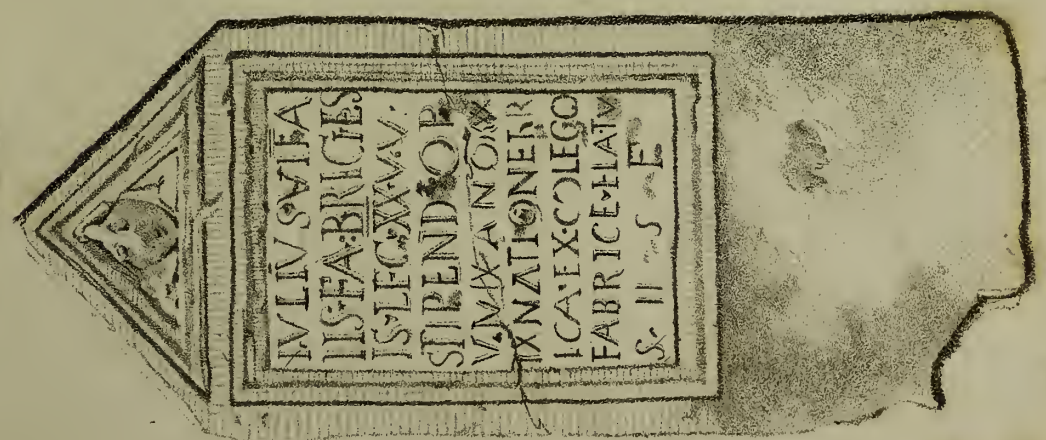 IVLIVS·VITA
LIS·FABRICIES
IS·LEG·XX·V·V·
STIPENDIOR
VM·IX·ANORXX
IX·NATIONE
EX·COLEGO
FABRICE·ELATV
S· H S E